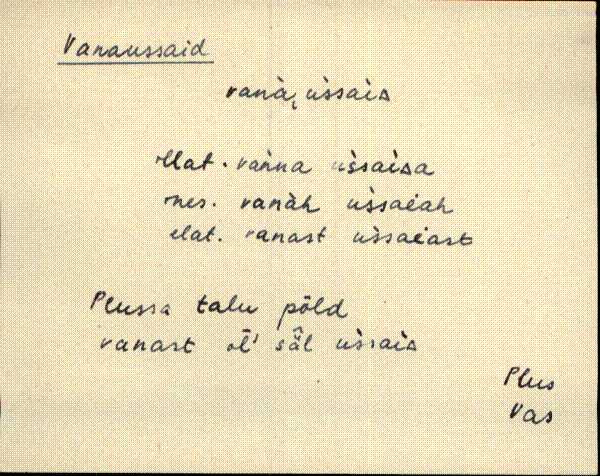 Vanaussaid
vanà, ùssàis
illat. vàǹna ùssaisa
ines. vanàh ùssaiah
elat. vanast ussaiast
Plussa talu põld
vanast ol̄' sä̂l ussais
Plus
Vas